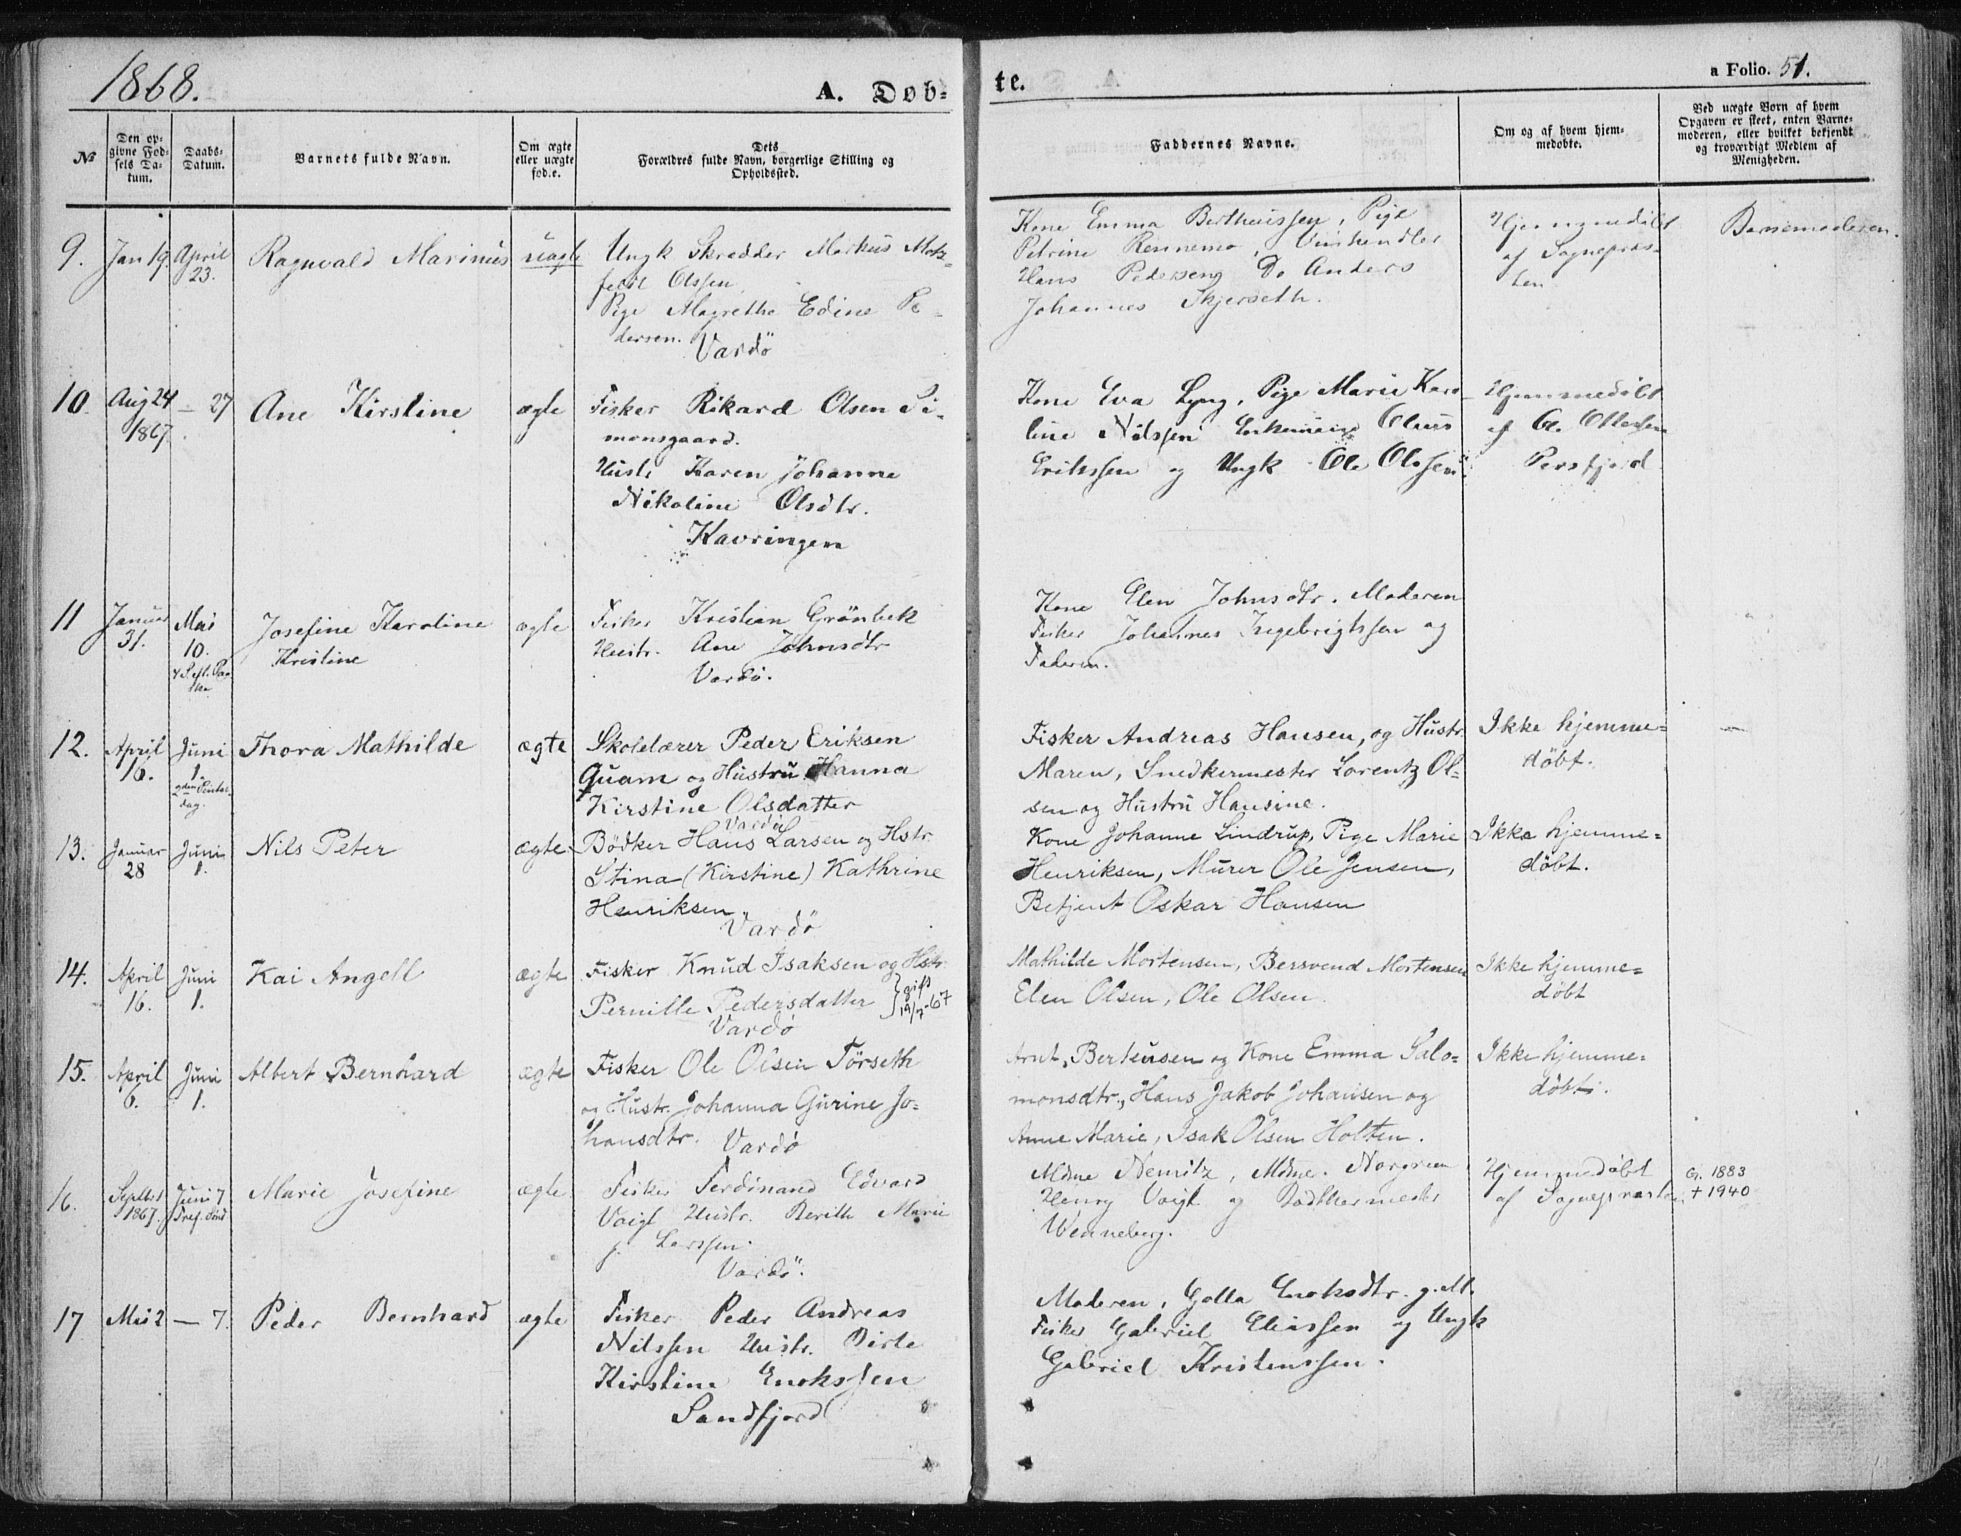 1868.
A. Døb-
te.
a Folio. 51.
№
Den op-
givne Fød-
sels Da-
tum.
Daabs-
Datum.
Barnets fulde Navn.
Om ægte
eller uægte
fød.e.
Dets
Forældres fulde Navn, borgerlige Stilling og
Opholdssted.
Faddernes Navne.
Om og af hvem hjem-
medøbte.
Ved uægte Børn af hvem
Opgaven er skeet, enten Barne-
moderen, eller hvilket bekjendt
og troværdigt Medlem af
Menigheden.
9.
Jan 19.
April
23.
Ragnvald Marinus
uægte
Ungk Skredder Markus Motz-
feldt Olssen
Pige Magrethe Edine Pe-
dersen.
Vardö
Kone Emma Bertheussen, Pige
Petrine Rennemo, Vinhendler
Hans Pedersen, Do Anders
Johannes Skjerseth.
Hjemmedøbt
af Sognepræs-
ten
Barnemoderen.
10.
Aug 24
1867.
— 27
Ane Kirstine
ægte
Fisker Rikard Olsen Si-
monsgaard.
Hustr Karen Johanne
Nikoline Olsdtr.
Kavringen
Kone Eva Lyng, Pige Marie Karo-
line Nilssen Enkemand Claus
Erikssen og Ungk Ole Olssen.
Hjemmedøbt
af Ottersen
Persfjord
11
Januar
31.
Mai
10.
4 S. eft. Paa-
ske
Josefine Karoline
Kristine
ægte
Fisker Kristian Grönbek
Hustr. Ane Johnsdtr
Vardö.
Kone Elen Johnsdtr. Moderen
Fisker Johannes Ingebrigtssen og
Faderen.
12.
April
16.
Juni
1.
2den Pintse-
dag.
Thora Mathilde
ægte
Skolelærer Peder Eriksen
Quam og Hustru Hanna
Kirstine Olsdatter
Vardö
Fisker Andreas Hansen, og Hustr.
Maren, Snedkermester Lorentz Ol-
sen og Hustru Hansine.
Ikke hjemme-
döbt.
13.
Januar
28
Juni
1.
Nils Peter
ægte
Bödker Hans Larsen og Hstr.
Stina (Kirstine) Kathrine
Henriksen.
Vardö
Kone Johanne Lindrup, Pige Marie
Henriksen, Murer Ole Jensen,
Betjent Oskar Hansen
Ikke hjemme-
döbt.
14.
April
16.
Juni
1.
Kai Angell
ægte
Fisker Knud Isaksen og Hstr.
Pernille Pedersdatter } gift
19/7-67
Vardö
Mathilde Mortensen, Bersvend Mortensen
Elen Olsen, Ole Olsen
Ikke hjemme-
döbt
15.
April
6.
Juni
1.
Albert Bernhard
ægte
Fisker Ole Olsen Törseth
og Hustr. Johanna Gurine Jo-
hansdtr.
Vardö
Arnt Berteusen og Kone Emma Salo-
monsdtr., Hans Jakob Johansen og
Anne Marie, Isak Olsen Holten.
Ikke hjemme-
döbt.
16.
Septbr
1867.
Juni 7
Tref. Sönd
Marie Josefine
ægte
Fisker Ferdinand Edvard
Voigt Hustr. Berith Marie
f. Larssen.
Vardö.
Mdme Nemitz, Mdme. Norgreen
Henry Voigt og Bödkkermester
Wenneberg.
Hjemmedøbt
af Sognepræsten
G. 1883
+ 1940
17
Mai 2
— 7.
Peder Bernhard
ægte
Fisker Peder Andreas
Nilssen Hustr. Birte
Kirstine Enokssen
Sandfjord
Moderen, Golla Enoksdtr. g. M.
Fisker Gabriel Eliassen og Ungk
Gabriel Kristenssen.